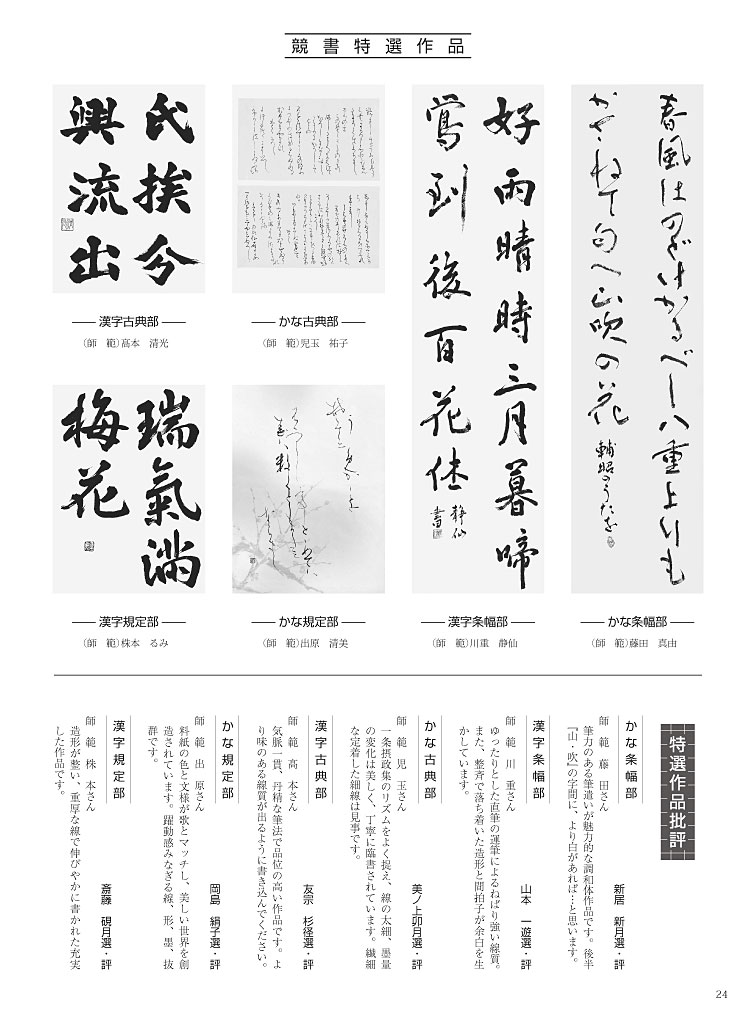 競書特選作品
春風はのどけかるべし八重よりも
かさねて匂へ山吹の花
輔昭のうたを
好雨晴時三月暮啼
鶯到後百花休
静仙書
氏挨分
興流出
瑞氣満
梅花
かな条幅部
(師 範)藤田 真由
漢字条幅部
(師 範)川重 静仙
かな古典部
(師 範)児玉 祐子
漢字古典部
(師 範)髙本 清光
かな規定部
(師 範)出原 清美
漢字規定部
(師 範)株本 るみ
特選作品批評
かな条幅部
新居 新月選・評
師 範 藤 田さん
筆力のある筆遣いが魅力的な調和体作品です。後半
『山・吹』の字間に、より白があれば…と思います。
漢字条幅部
山本 一遊選・評
師 範 川 重さん
ゆったりとした直筆の運筆によるねばり強い線質。
また、整斉で落ち着いた造形と間拍子が余白を生
かしています。
かな古典部
美ノ上卯月選・評
師 範 児 玉さん
一条摂政集のリズムをよく捉え、線の太細、墨量
の変化は美しく、丁寧に臨書されています。繊細
な定着した細線は見事です。
漢字古典部
友宗 杉径選・評
師 範 髙 本さん
気脈一貫、丹精な筆法で品位の高い作品です。よ
り味のある線質が出るように書き込んでください。
かな規定部
岡島 絹子選・評
師 範 出 原さん
料紙の色と文様が歌とマッチし、美しい世界を創
造されています。躍動感みなぎる線、形、墨、抜
群です。
漢字規定部
斎藤 硯月選・評
師 範 株 本さん
造形が整い、重厚な線で伸びやかに書かれた充実
した作品です。
24